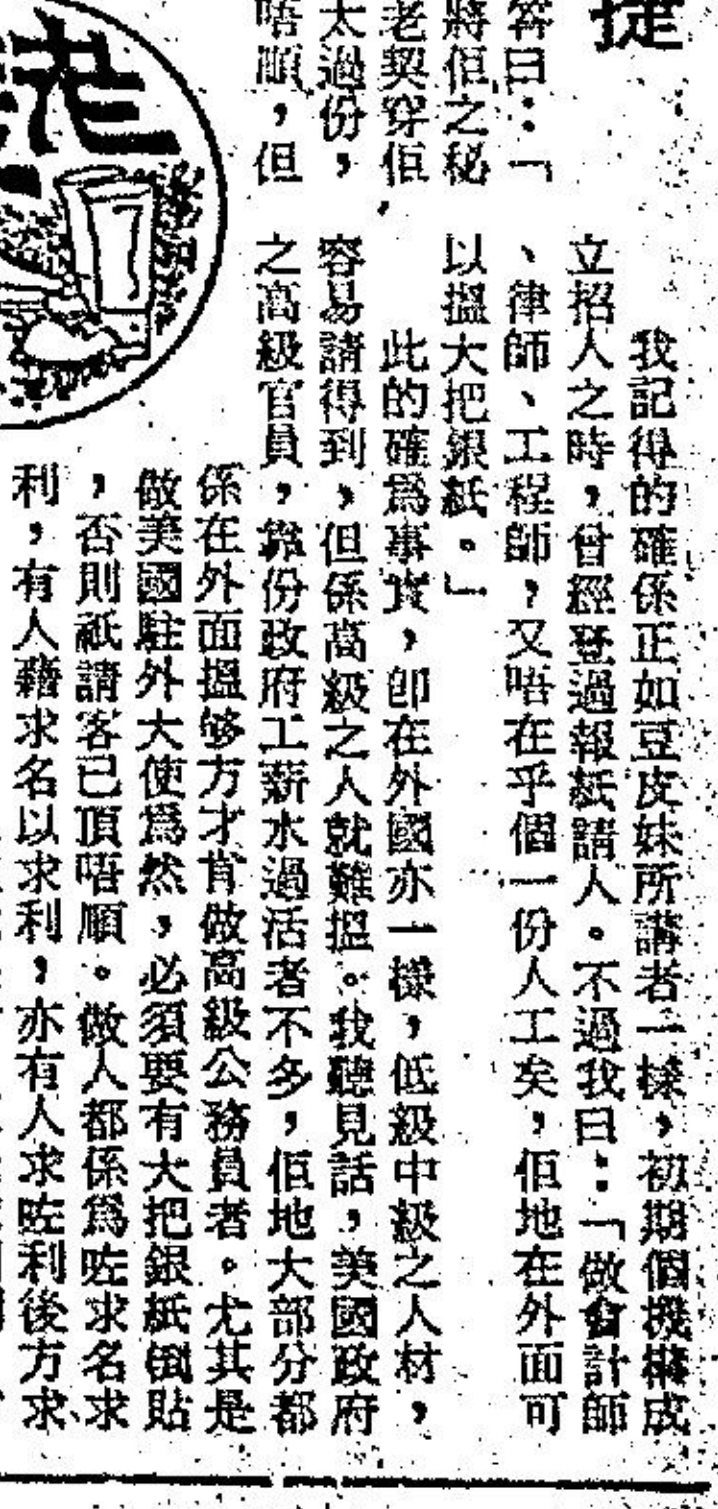 捷
答曰：「
將佢之秘
老契穿佢，
太過份，
唔順，但
老
我記得的確係正如豆皮妹所講者一樣，初期個機構成
立招人之時，曾經登過報紙請人。不過我曰：「做會計師
、律師、工程師，又唔在乎個一份人工矣，佢地在外面可
以搵大把銀紙。」
此的確爲事實，卽在外國亦一樣，低級中級之人材，
容易請得到，但係高級之人就難搵。我聽見話，美國政府
之高級官員，靠份政府工薪水過活者不多，佢地大部分都
係在外面搵够方才肯做高級公務員者。尤其是
做美國駐外大使爲然，必須要有大把銀紙倒貼
，否則祇請客已頂唔順。做人都係爲咗求名求
利，有人藉求名以求利，亦有人求咗利後方求